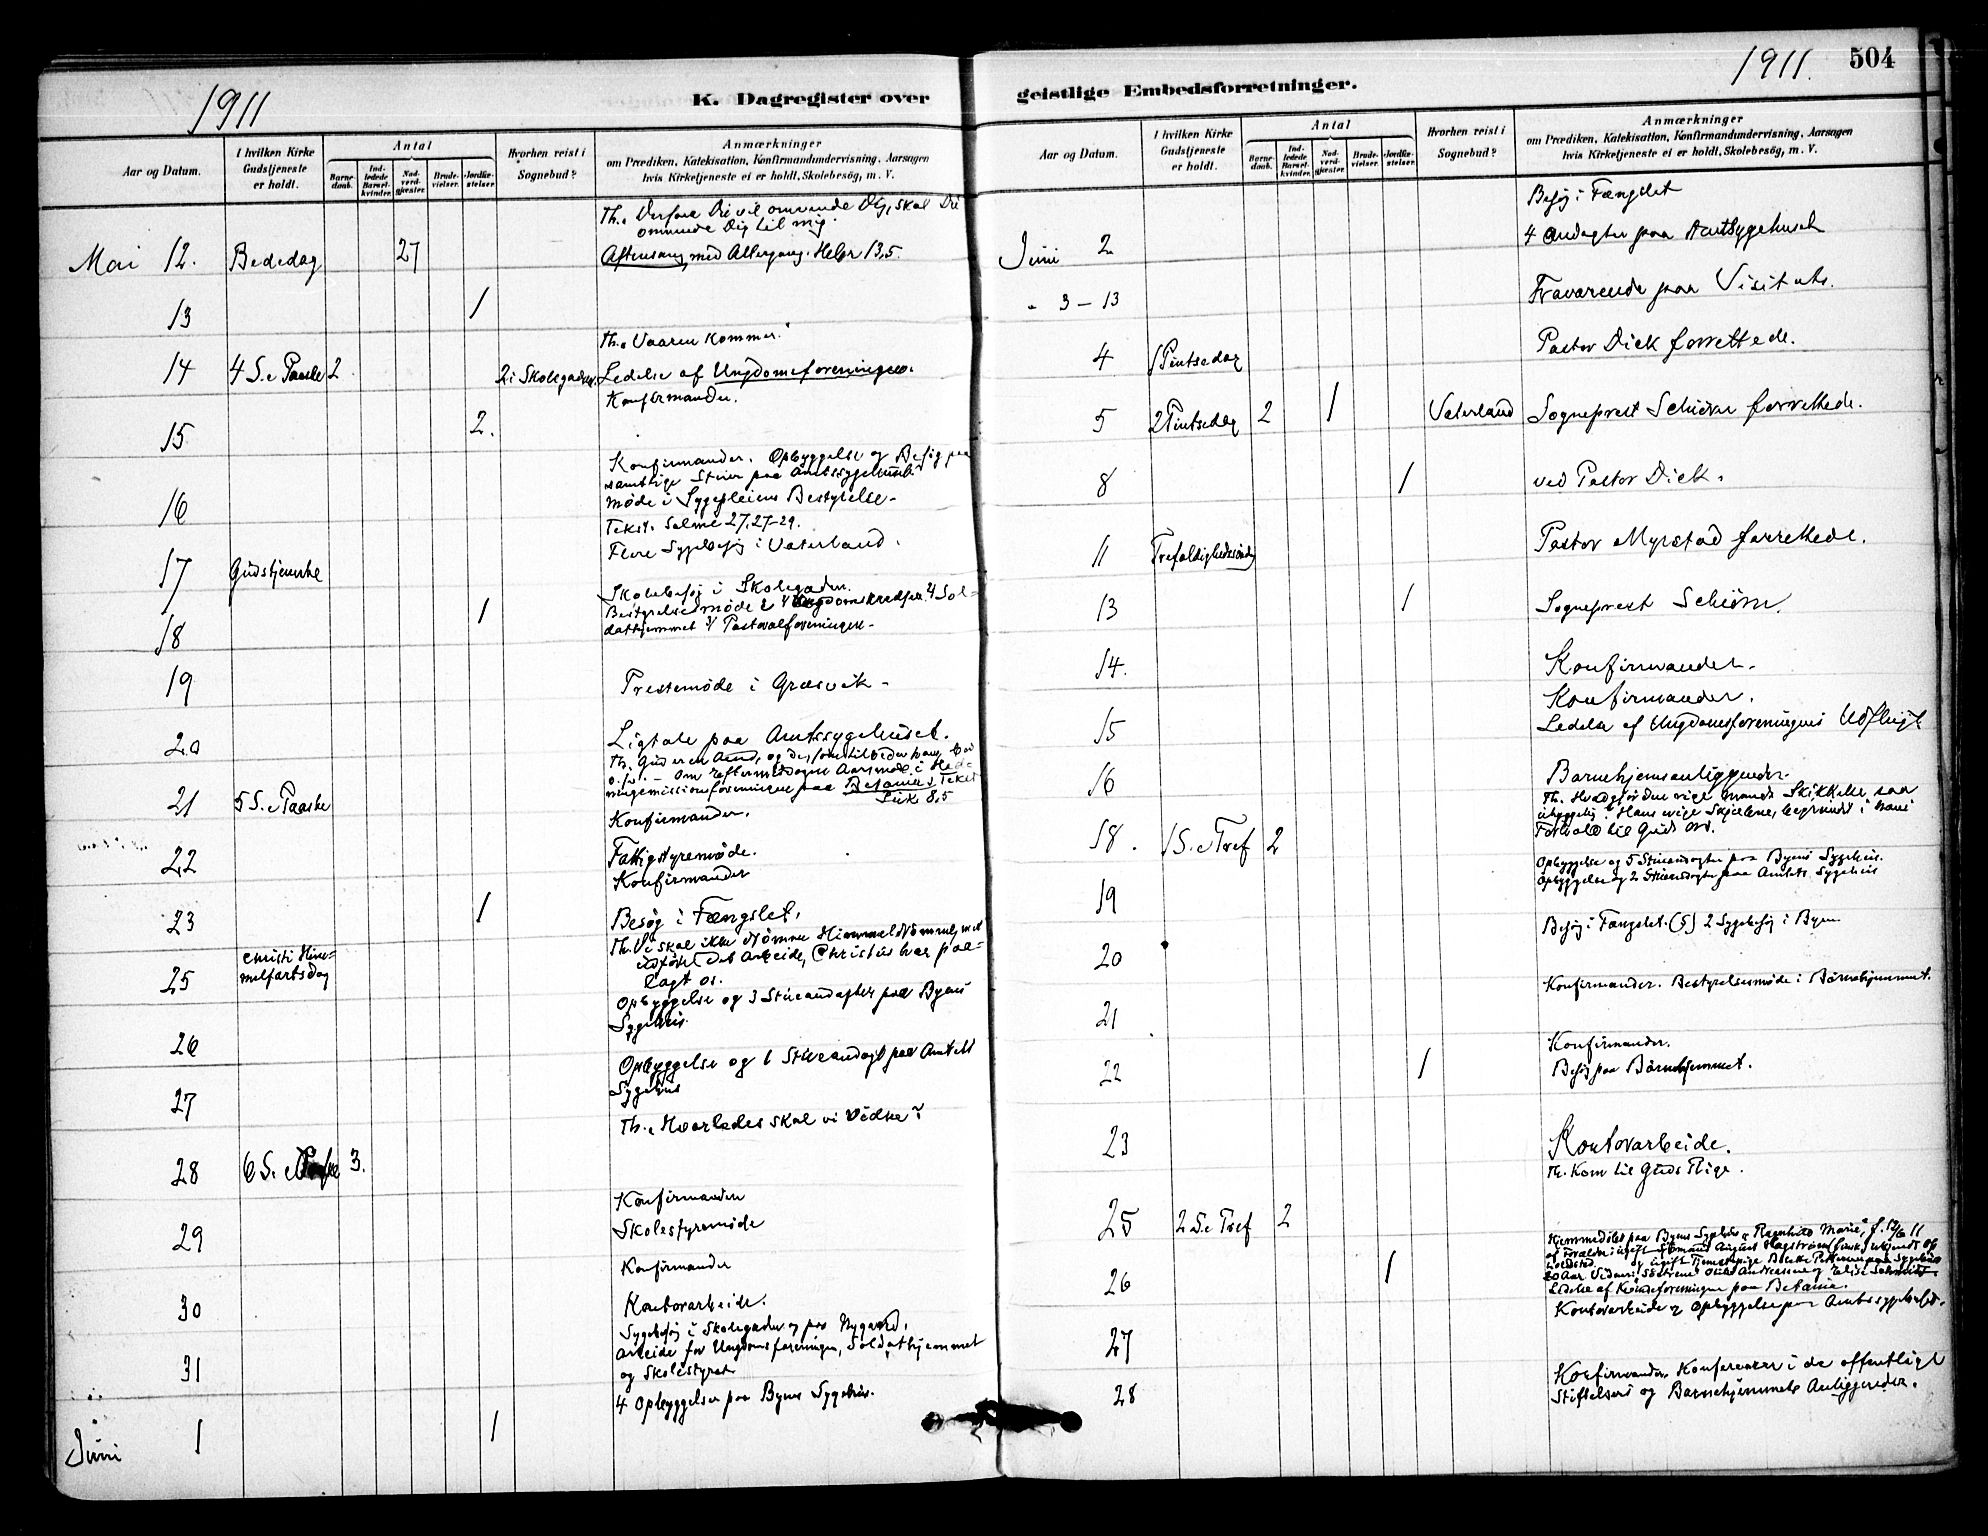 1911
K. Dagregister over
Aar og Datum.
I hvilken Kirke Gudstjeneste er holdt.
Antal
Barne-daab.
Ind-ledede Barsel-kvinder.
Nad-verd-gjester.
Brude-vielser.
Jordfæ-stelser.
Hvorhen reist i Sognebud?
Anmærkninger
om Prædiken, Katekisation, Konfirmandundervisning, Aarsagen
hvis Kirketjeneste ei er holdt, Skolebesøg, m. V.
Th. Dersom Du vil omvende Dig, skal Du
omvende Dig til mig.
Mai 12. Bededag 27 Aftensang med Altergang. Hebr 13,5.
13 1
Th. Vaaren kommer.
14 4 S. e Paaske 2 2 i Skolegaden. Ledelse af Ungdomsforeningen.
Konfirmander.
15 2.
Konfirmander. Opbyggelse og Besøg paa
samtlige Stuer paa Amtssygehuset
Møde i Sygepleiens Bestyrelse
16 Tekst. Salme 27, 27-29.
Flere Sygebesøg i Vaterland.
17 Gudstjeneste
Skolebesøg i Skolegaden.
Bestyrelsesmøde Ungdomskredsen Sol-
dathjemmet Pastoralforeningen
18 1
19 Prestemøde i Græsvik
20 Ligtale paa Amtssygehuset.
Th. Gud er en Aand, og de, som tilbeder ham bør
o.s.v. - Om Eftermiddagen Aarsmøde i Hed-
ningemissionsforeningen paa Betania Tekst
Luk 8,5
21 5 S. e Paaske
Konfirmander.
22 Fattigstyremøde.
Konfirmander
23 1 Besøg i Fængslet.
Th. Vi skal ikke drømme Himmeldrømme, men
udføre det Arbeide, Christus har paa-
lagt os.
25 Christi Him-
melfartsdag
Opbyggelse og 3 Stueandagter paa Byens
Sygehus.
26
Opbyggelse og 1 Stueandagt paa Amtets
Sygehus
27
Th. Hvorledes skal vi vidne?
28 6 S. e Paaske 3.
Konfirmander
29 Skolestyremøde
Konfirmander
30 Kontorarbeide.
Sygebesøg i Skolegaden og paa Nygaard.
Arbeide for Ungdomsforeningen, Soldathjemmet
31 og Skolestyret
4 Opbyggelser paa Byens Sygehus.
Juni 1 1
1911. 504
geistlige Embedsforretninger.
Aar og Datum.
I hvilken Kirke Gudstjeneste er holdt.
Antal
Barne-daab.
Ind-ledede Barsel-kvinder.
Nad-verd-gjester.
Brude-vielser.
Jordfæ-stelser.
Hvorhen reist i Sognebud?
Anmærkninger
om Prædiken, Katekisation, Konfirmandundervisning, Aarsagen
hvis Kirketjeneste ei er holdt, Skolebesøg, m. V.
Besøg i Fængslet
4 Andagter paa Amtssygehuset
Juni 2
" 3 - 13 Fraværende paa Visitats.
4 1 Pintsedag Pastor Dick forrettede.
5 2 Pintsedag 2 1 Vaterland Sogneprest Schiörn forrettede.
8 1 ved Pastor Dick.
11 Trefoldighedssöndag Pastor Myrstad forrettede.
13 1 Sogneprest Schiörn.
14. Konfirmander.
Konfirmander.
15 Ledelse af Ungdomsforeningens Udflugt
16 Barnehjemsanliggender.
Th. Hvad gjør den rige Mands Skikkelse saa
uhyggelig? Hans evige Skjæbne, begrundet i hans
Forhold til Guds Ord.
18. 1 S. e Tref 2
Opbyggelse og 5 Stueandagter paa Byens Sygehus.
Opbyggelse og 2 Stueandagter paa Amtets Sygehus
19
Besøg i Fængslet. (5) 2 Sygebesøg i Byen
20
Konfirmander. Bestyrelsesmøde i Børnehjemmet.
21
Konfirmander.
22 1 Besøg paa Børnehjemmet.
23 Kontorarbeide.
Th. Kom til Guds Rige.
25 2 S. e Tref 2
Hjemmedøbt paa Byens Sygehus "Ragnhild Marie", f. 12/6 11
af Forældre: ugift August Hagstrøm
og ugift Tjenestepige Pettersen paa Sygehuset
20 Aar Vidner: Andreassen og Elise Schmidt.
26 1 Ledelse af Kvindeforeningen paa Betania.
Kontorarbeide og Opbyggelse paa Amtssygehuset.
27
Konfirmander. Konferencer i de offentlige
28 Stiftelsers og Barnehjemmets Anliggender.